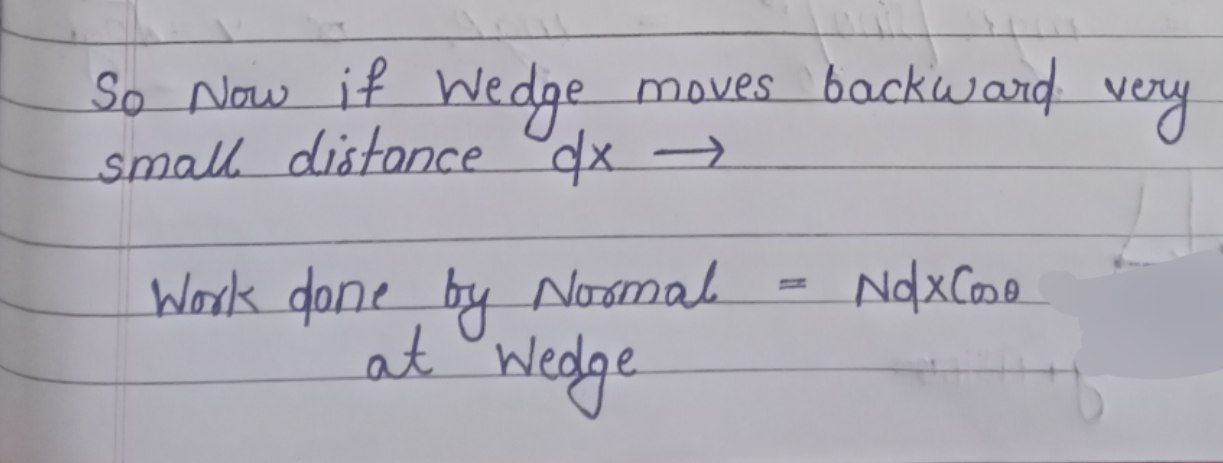 So Now if Wedge moves backward very
small distance dx →
Work done by Normal = NdxCosθ
at Wedge